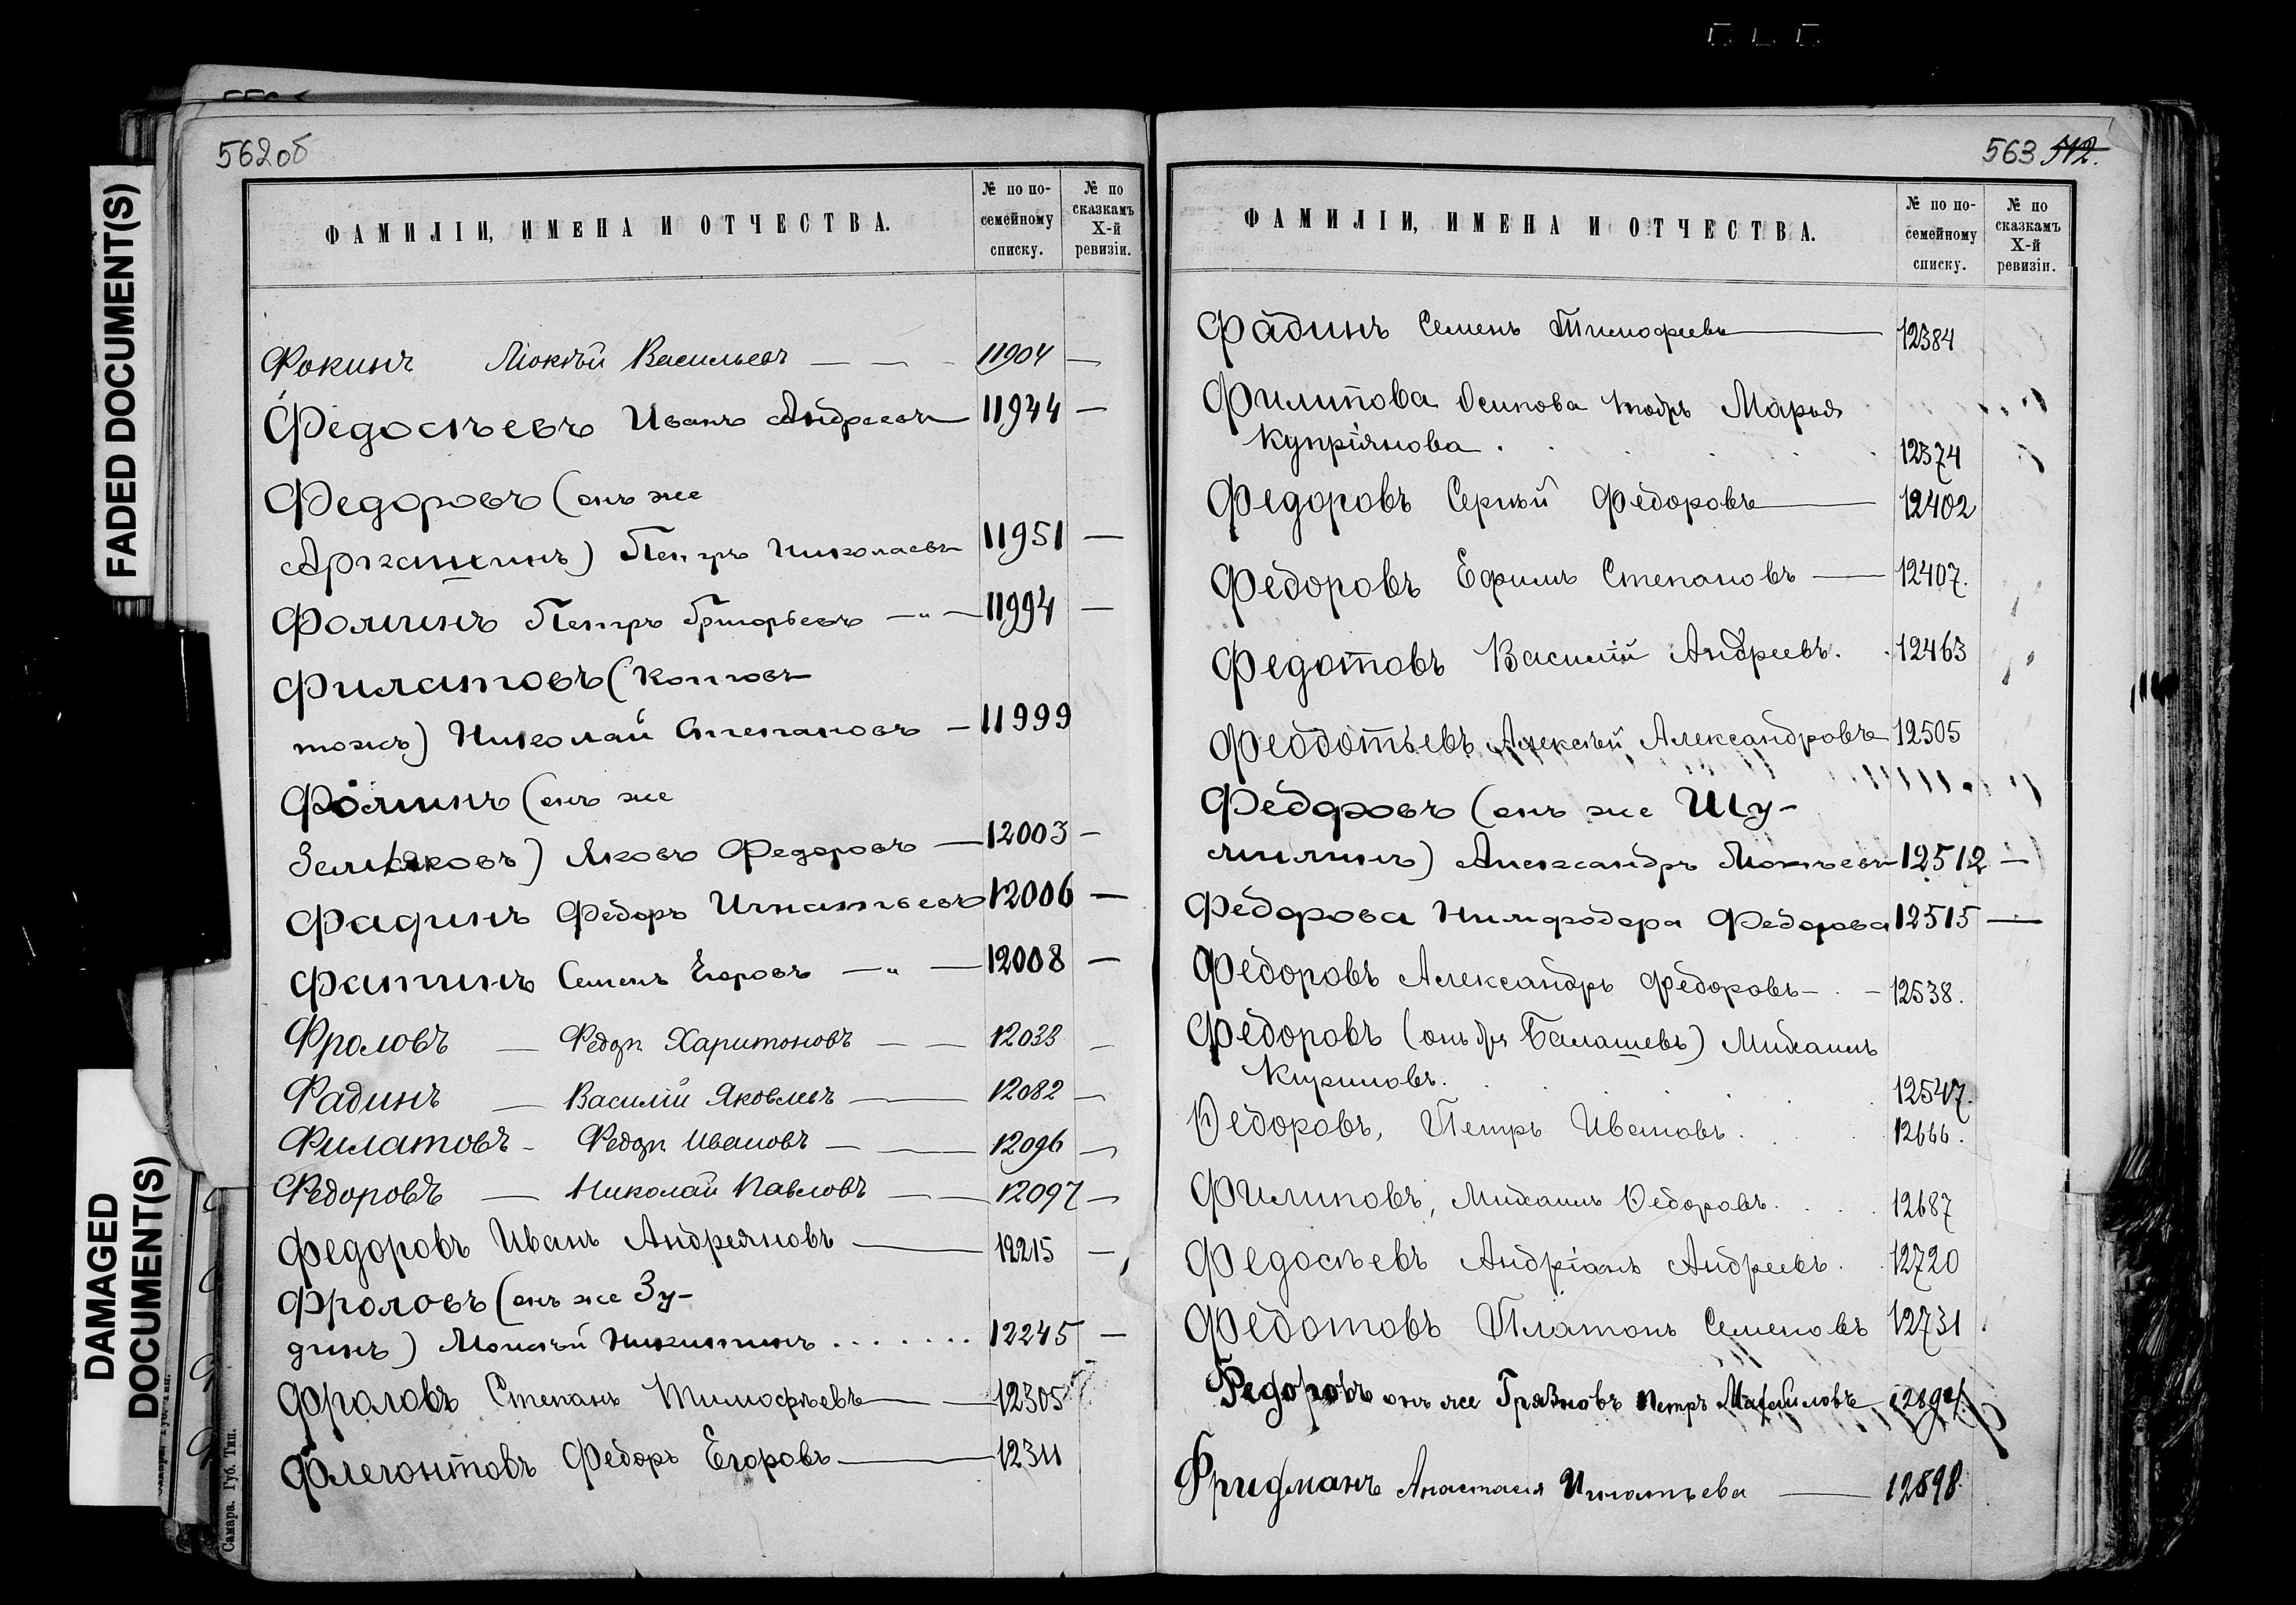 562об
ФАМИЛІИ, ИМЕНА И ОТЧЕСТВА.
№ по по-
семейному
списку.
№ по
сказкамъ
X-й
ревизіи.
Фокинъ Мокѣй Васильевъ — — - 11904 —
Федосѣевъ Иванъ Андреевъ 11944 —
Федоровъ (онъ же
Аргашинъ) Петръ Николаевъ 11951 —
Фоминъ Петръ Григорьевъ — „ — 11994 —
Филатовъ (Коповъ
тожъ) Николай Степановъ — 11999
Фоминъ (онъ же
Земляковъ) Яковъ Федоровъ — 12003 —
Фадинъ Федоръ Игнатьевъ 12006 —
Фатинъ Семенъ Егоровъ — „ — 12008 —
Фроловъ — Федоръ Харитоновъ — — 12033 —
Фадинъ — Василій Яковлевъ — 12082 —
Филатовъ - Федоръ Ивановъ — — 12096 —
Федоровъ — Николай Павловъ — — 12097 —
Федоровъ Иванъ Андреяновъ — 12215 —
Фроловъ (онъ же Зу-
динъ) Моисѣй Никитинъ ....... 12245 —
Фроловъ Степанъ Тимофѣевъ — — 12305
Флегонтовъ Федоръ Егоровъ — 12311
563 512.
ФАМИЛІИ, ИМЕНА И ОТЧЕСТВА.
№ по по-
семейному
списку.
№ по
сказкамъ
X-й
ревизіи.
Фадинъ Семенъ Тимофеевъ — 12384
Филипова Осипова Марья
Купріянова . 12374
Федоровъ Сергѣй Федоровъ — 12402
Федоровъ Ефимъ Степановъ — 12407.
Федотовъ Василій Андреевъ. 12463
Феодотьевъ Алексѣй Александровъ 12505
Федоровъ (онъ же Шу-
милинъ) Александръ Мокѣевъ 12512 —
Федорова Нимфодора Федорова 12515 —
Федоровъ Александръ Федоровъ — . — 12538.
Федоровъ (онъ же Балашевъ) Михаилъ
Кириловъ. 12547.
Федоровъ, Петръ Ивановъ. 12666.
Филиповъ, Михаилъ Федоровъ. 12687
Федосѣевъ Андріанъ Андреевъ. 12720
Федотовъ Платонъ Семеновъ 12731
Федоровъ онъ же Грязновъ Петръ
Фридманъ Анастасія Игнатьева — 12898.
FADED DOCUMENT(S)
DAMAGED
DOCUMENT(S)
Самара. Губ. Тип.